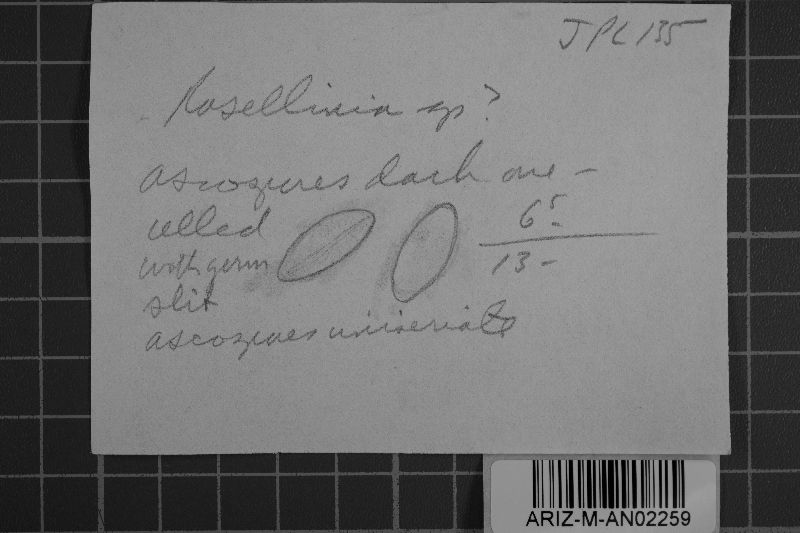 JPL 135
Rosellinia sp?
ascospores dark one-
celled
with germ
slit
6.5-
13-
ascospores uniseriate
ARIZ-M-AN02259